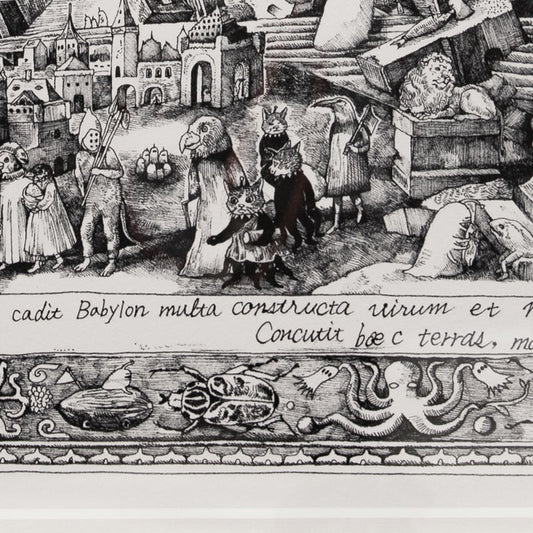 cadit Babylon multa constructa virum et
Concutit hoec terras,